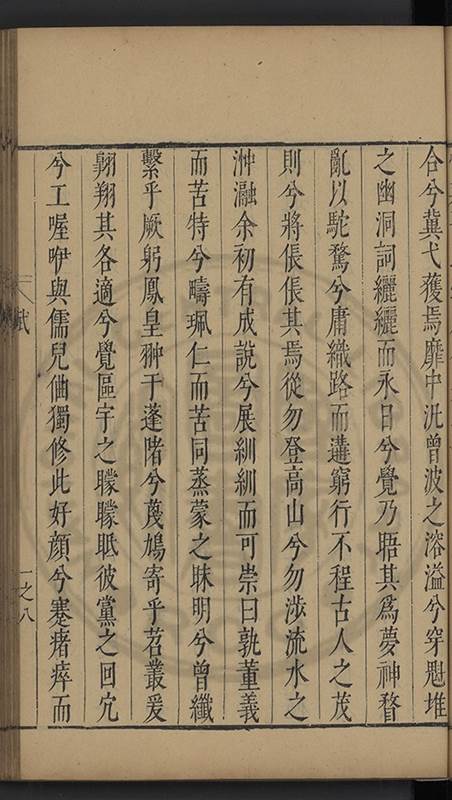 合兮冀弋獲焉靡中汎曾波之溶溢兮穿魁堆
之幽洞詞纚纚而永日兮覺乃𥈭其為夢神瞀
亂以駝騖兮庸織路而遘窮行不程古人之茂
則兮將倀倀其焉從勿登高山兮勿涉流水之
沖瀜余初有成說兮展紃紃而可崇曰孰董義
而苦特兮疇珮仁而苦同蒸蒙之昧明兮曾纖
繫乎厥躬鳳皇翀于蓬陼兮蔑鳩寄乎苕叢爰
翱翔其各適兮覺區宇之矇矇眡彼黨之回宂
兮工喔咿與儒兒偭獨修此好顔兮蹇瘏瘁而
賦
一之八